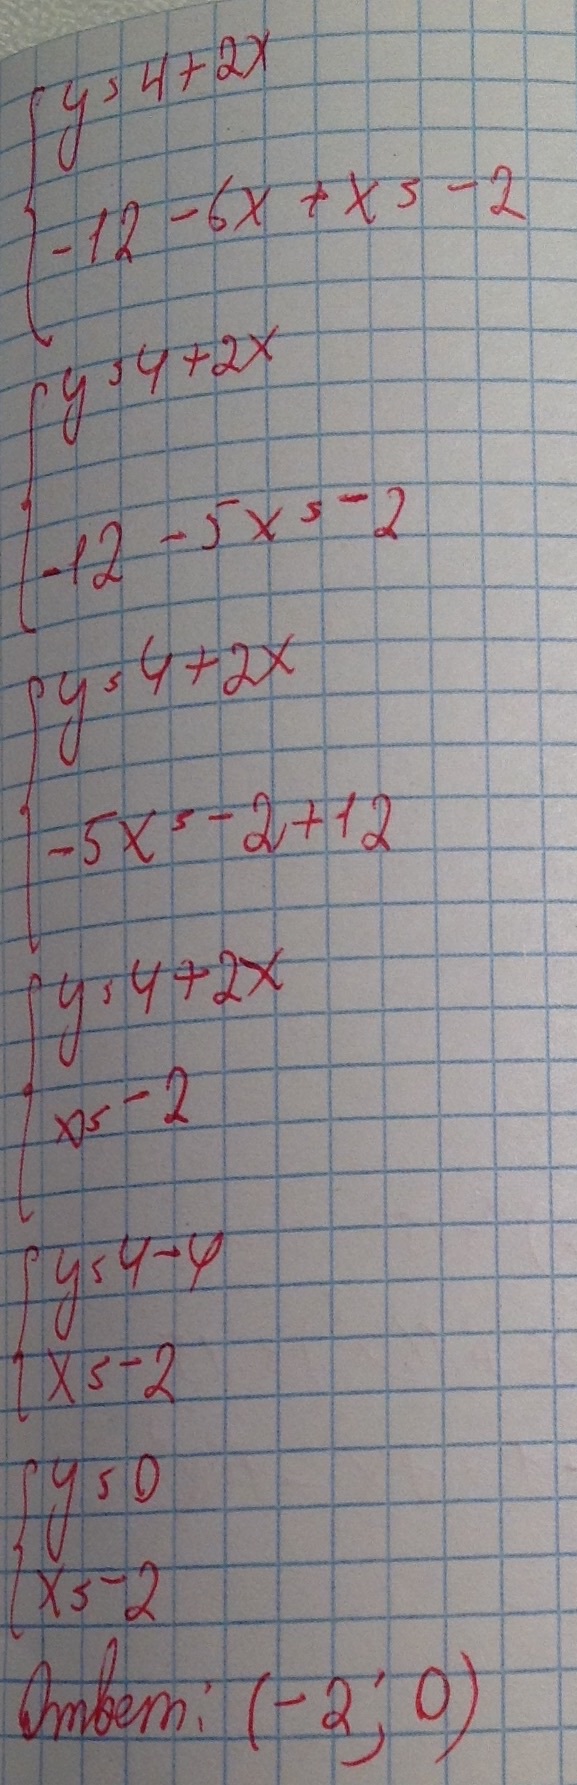 y = 4 + 2x
-12 - 6x + x = -2
y = 4 + 2x
-12 - 5x = -2
y = 4 + 2x
-5x = -2 + 12
y = 4 + 2x
x = -2
y = 4 - 4
x = -2
y = 0
x = -2
Ответ: (-2; 0)